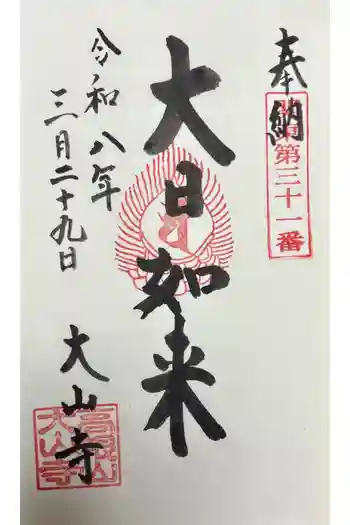 奉納
第三十一番
大日如来
令和八年
三月二十九日
大山寺